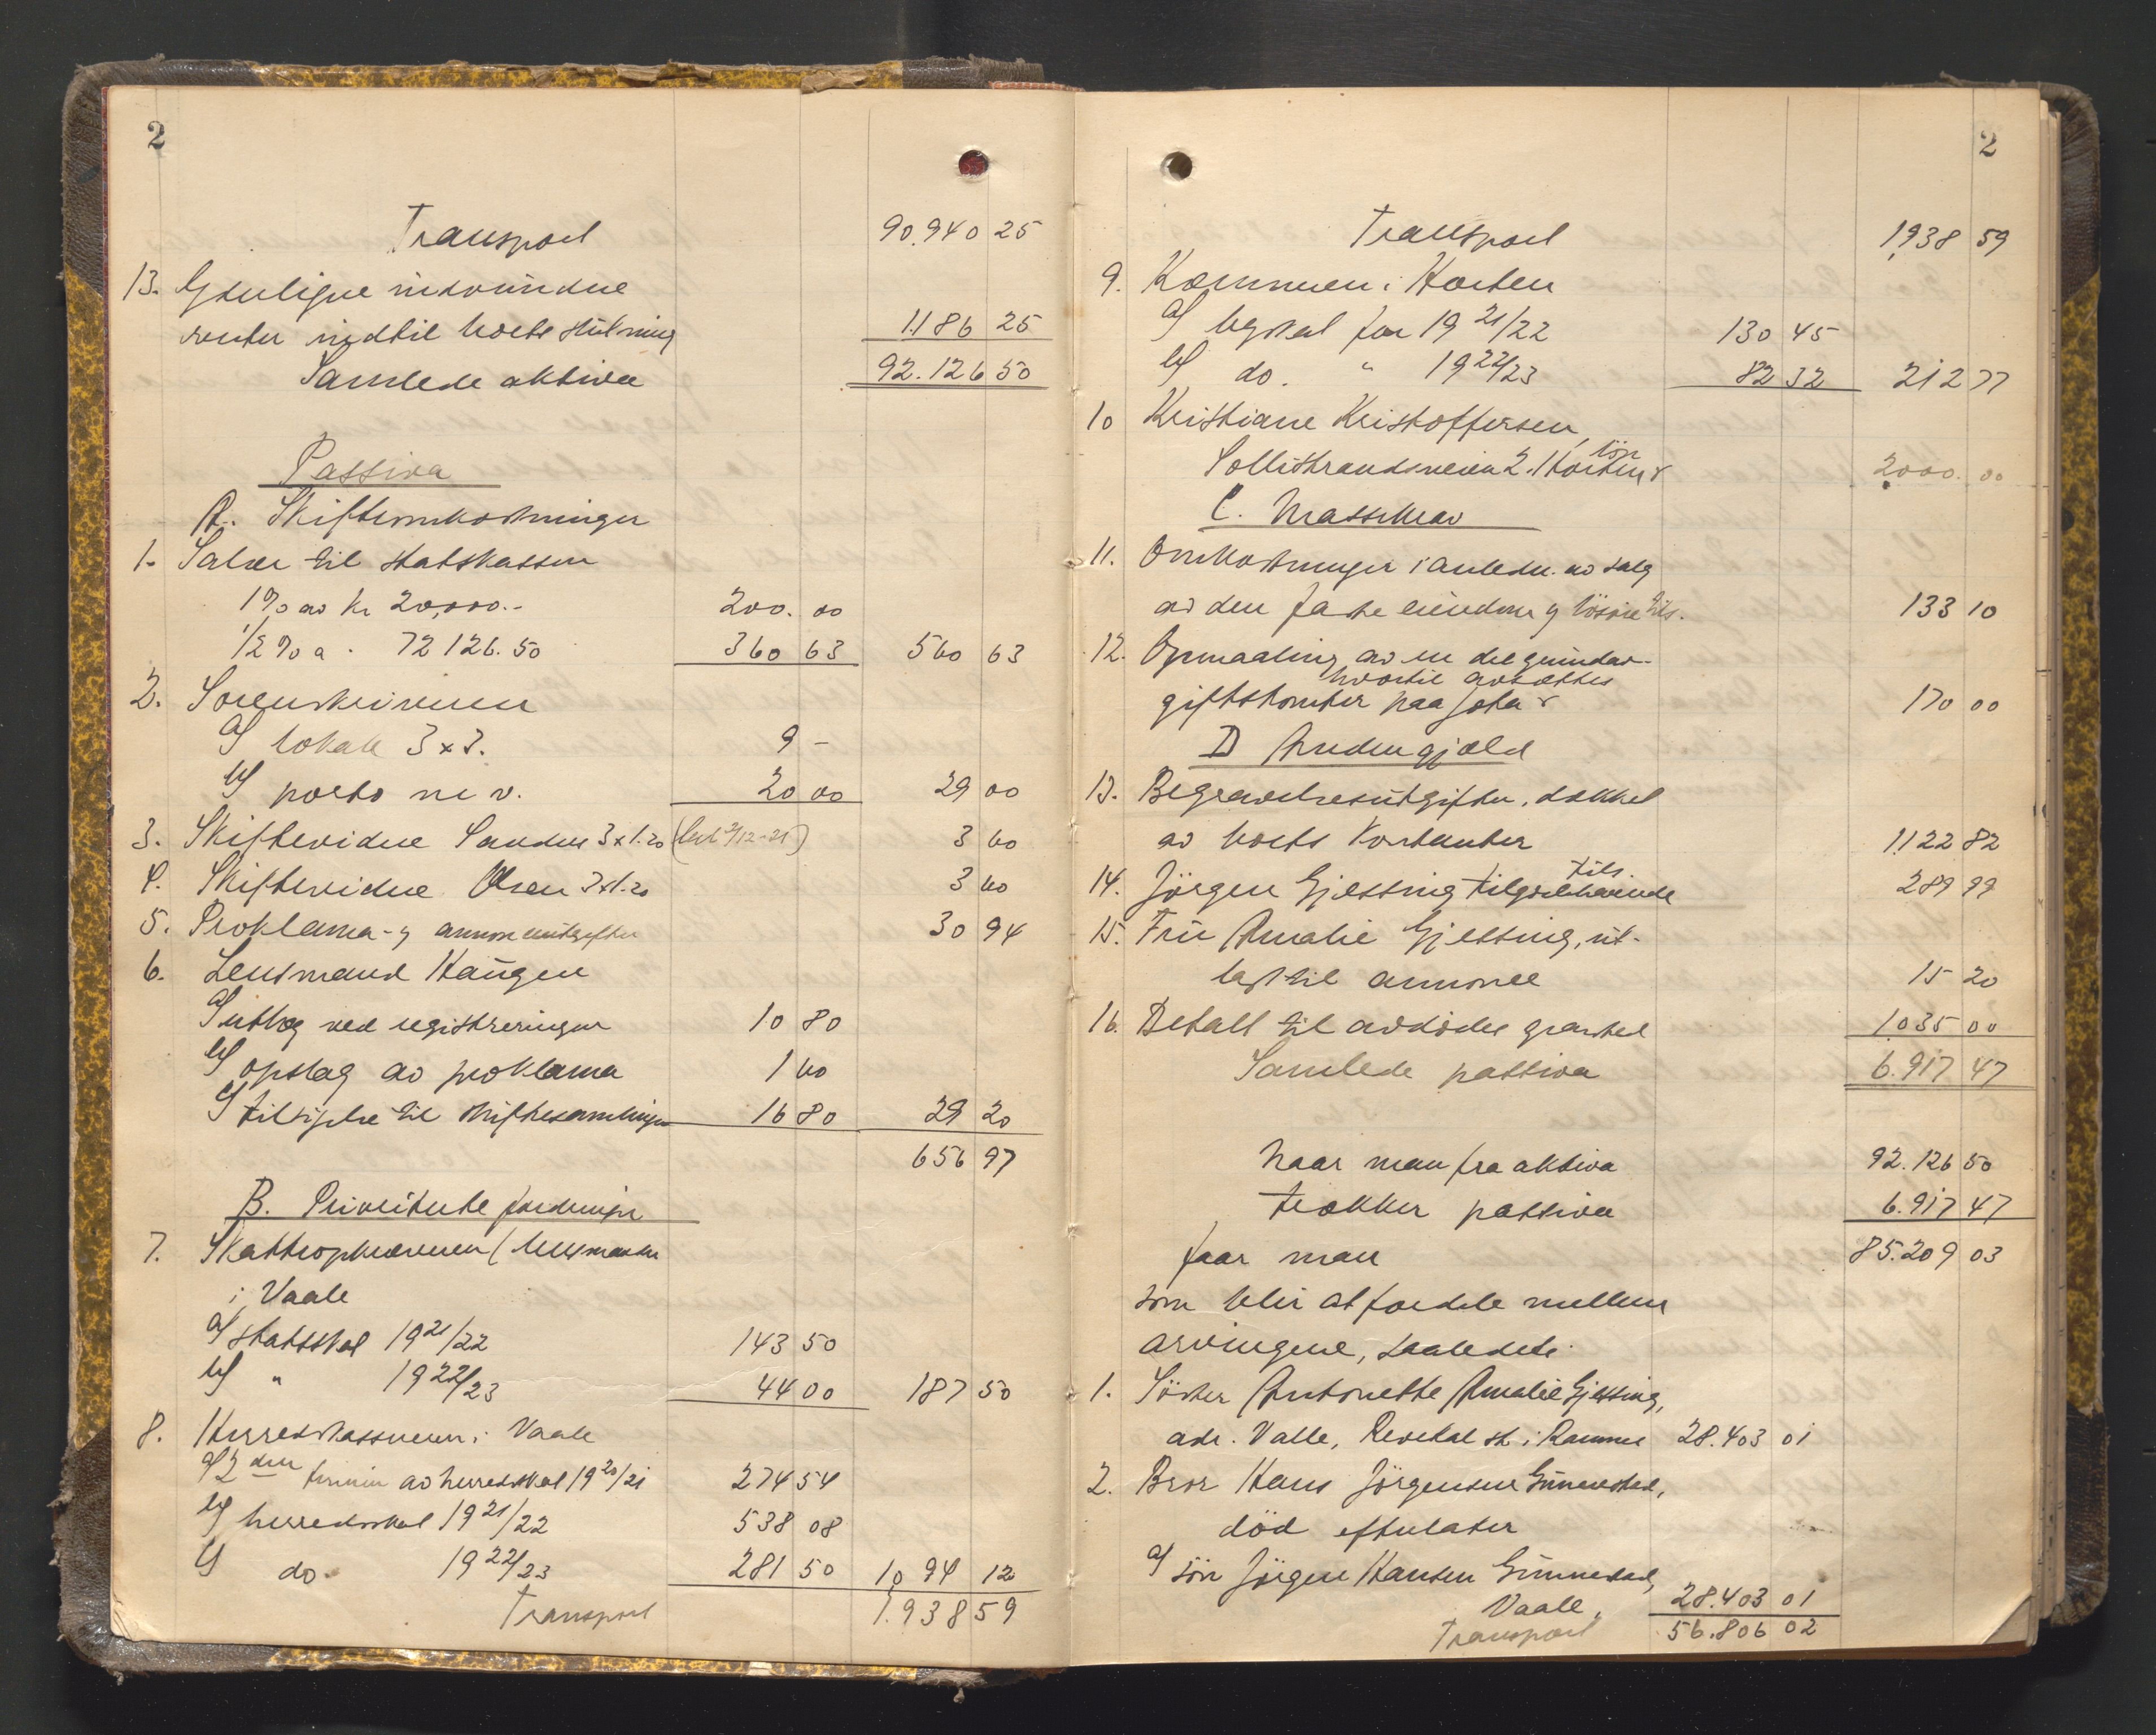 2
Transport 90.940 25
13. Ytterligere indvundne
renter indtil boets slutning 1.186 25
Samlede aktiva 92.126 50
Passiva
A. Skifteomkostninger
1. Salær til statskassen
1% av kr 20,000.- 200.00
1/2% a - 72126.50 360 63 560 63
2. Sorenskriveren
a/ lokale 3x3. 9 -
b/ porto m v. 20 00 29 00
3. Skiftevidne Sanden 3x1.20 3 60
4. Skiftevidne Olsen 3x1.20 3 60
5. Proklama- og annonceutgifter 30 94
6. Lensmand Haugen
a/ utlæg ved registreringen 10 80
b/ opslag av proklama 1 60
c/ tilsigelse til skiftesamlingen 16 80 29 20
656 97
B. Privilerte fordringer
7. Skatteopkræveren (lensmanden
i Vaale
a/ statsskat 1921/22 143 50
b/ " 1922/23 44 00 187 50
8. Herredskassereren i Vaale
a/ 2den termin av herredsskat 1920/21 274 54
b/ herredsskat 1921/22 538 08
c/ do. 1922/23 281 50 1094 12
Transport 1.938 59
2
Transport 1.938 59
9. Kæmneren i Horten
a/ byskat for 1921/22 130 45
b/ do. " 1922/23 82 32 212 77
10 Kristiane Kristoffersen,
Sollistrandsveien 2. Horten, løn 2000.00
C. Massekrav
11. Omkostninger i anledn. av salg
av den faste eiendom og løsøre tils. 133 10
12. Opmaaling av en del grundav-
giftstomter paa Jota hvortil avsættes 170 00
D Anden gjæld
13. Begravelsesutgifter, dækket
av boets kontanter 1.122 82
14. Jörgen Gjessing tilgodehavende tils. 289 99
15. Frü Amalie Gjessing, ut-
læg til annonce 15 20
16. Betalt til avdødes gravsted 1035 00
Samlede passiva 6.917 47
Naar man fra aktiva 92.126 50
trækker passiva 6.917 47
faar man 85.209 03
som blir at fordele mellem
arvingene, saaledes:
1. Söster Antonette Amalie Gjessing,
adr. Valle, Revetal st. i Ramnes 28.403 01
2. Bror Hans Jörgensen Gunnestad,
död efterlater
a/ sön Jörgen Hansen Gunnestad,
Vaale, 28.403 01
Transport 56.806 02